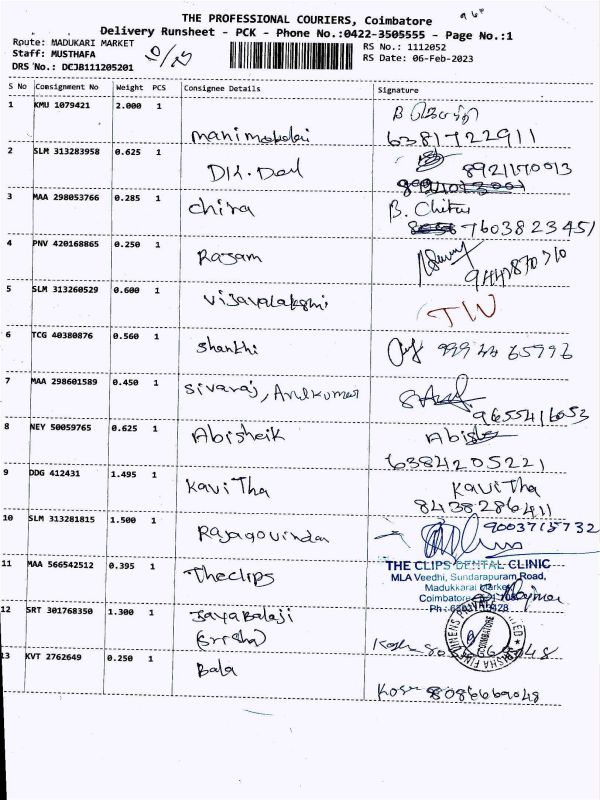 THE PROFESSIONAL COURIERS, Coimbatore
Delivery Runsheet - PCK - Phone No.:0422-3505555 - Page No.:1
Route: MADUKARI MARKET
Staff: MUSTHAFA
DRS No.: DCJB111205201
RS No.: 1112052
RS Date: 06-Feb-2023
S No Consignment No Weight PCS Consignee Details Signature
1 KMU 1079421 2.000 1
manimekalai 6381722911
2 SLM 313283958 0.625 1
8921170013
3 MAA 298053766 0.285 1 chira B. Chitra
7603823451
4 PNV 420168865 0.250 1
Rajam
5 SLM 313260529 0.600 1
Vijayalakshmi
6 TCG 40380876 0.560 1
Shanthi 999 44 65996
7 MAA 298601589 0.450 1
Sivaraj, Arulkumar
9655416053
8 NEY 50059765 0.625 1
Abisheik
6384205221
9 DDG 412431 1.495 1
KaviTha KaviTha
8438286411
10 SLM 313281815 1.500 1 9003715732
Rajagovindan
11 MAA 566542512 0.395 1 THE CLIPS DENTAL CLINIC
Theclips MLA Veedhi, Sundarapuram Road,
Madukkarai Market
Coimbatore
12 SRT 301768350 1.300 1
Jayabalaji
COIMBATORE
13 KVT 2762649 0.250 1
Bala
8086669048